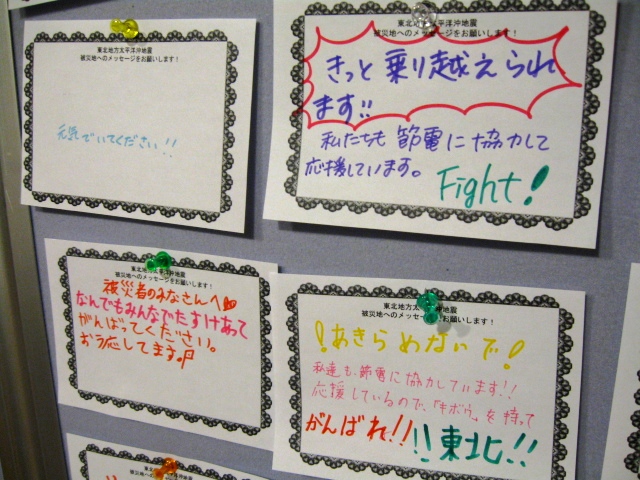 東北地方太平洋沖地震
被災地へのメッセージをお願いします！
元気でいてください!!
東北地方太平洋沖地震
被災地へのメッセージをお願いします！
きっと乗り越えられ
ます!!
私たちも節電に協力して
応援しています。
Fight!
東北地方太平洋沖地震
被災地へのメッセージをお願いします！
被災者のみなさんへ
なんでもみんなでたすけあって
がんばってください。
おう応してます。
東北地方太 洋沖地震
被災地へのメッセージをお願いします！
!あきらめないで!
私達も、節電に協力しています!!
応援しているので、「キボウ」を持って
がんばれ!!
!!東北!!
東北地方太 洋沖地震
被災地へのメッセージをお願いします！